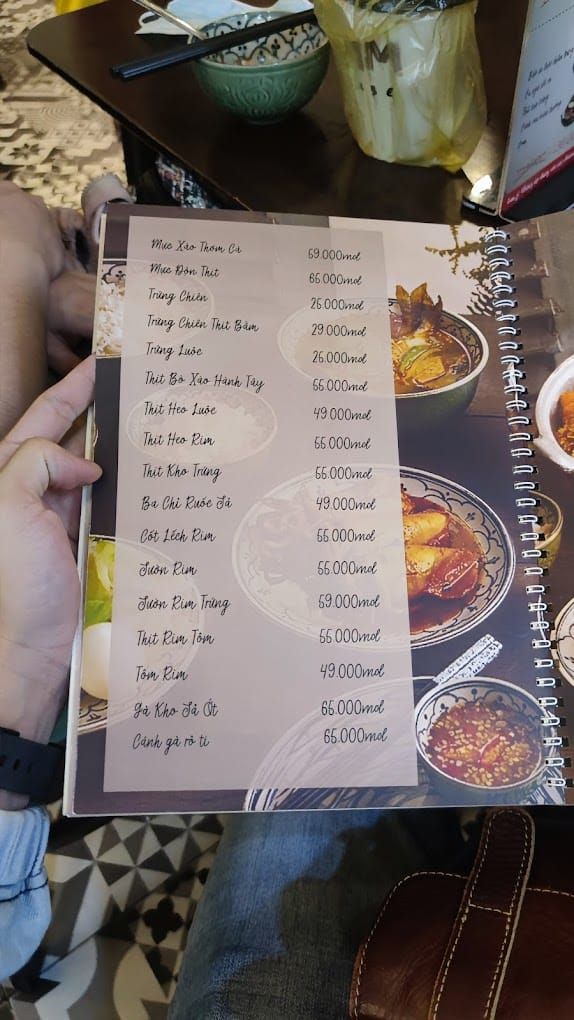 Mực Xào Thơm Cà 59.000mol
Mực Dồn Thịt 65.000mol
Trứng Chiên 25.000mol
Trứng Chiên Thịt Bằm 29.000mol
Trứng Luộc 25.000mol
Thịt Bò Xào Hành Tây 55.000mol
Thịt Heo Luộc 49.000mol
Thịt Heo Rim 55.000mol
Thịt Kho Trứng 55.000mol
Ba Chỉ Ruốc Sả 49.000mol
Cốt Lếch Rim 55.000mol
Sườn Rim 55.000mol
Sườn Rim Trứng 59.000mol
Thịt Rim Tôm 55.000mol
Tôm Rim 49.000mol
Gà Kho Sả Ớt 65.000mol
Cánh gà rô ti 65.000mol